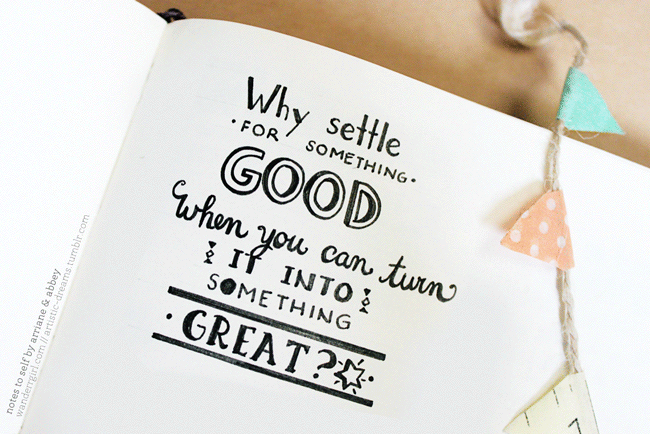 Why settle
·FOR SOMETHING·
GOOD
When you can turn
IT INTO
SOMETHING
·GREAT?
notes to self by arriane & abbey
wanderrgirl.com // artistic-dreams.tumblr.com